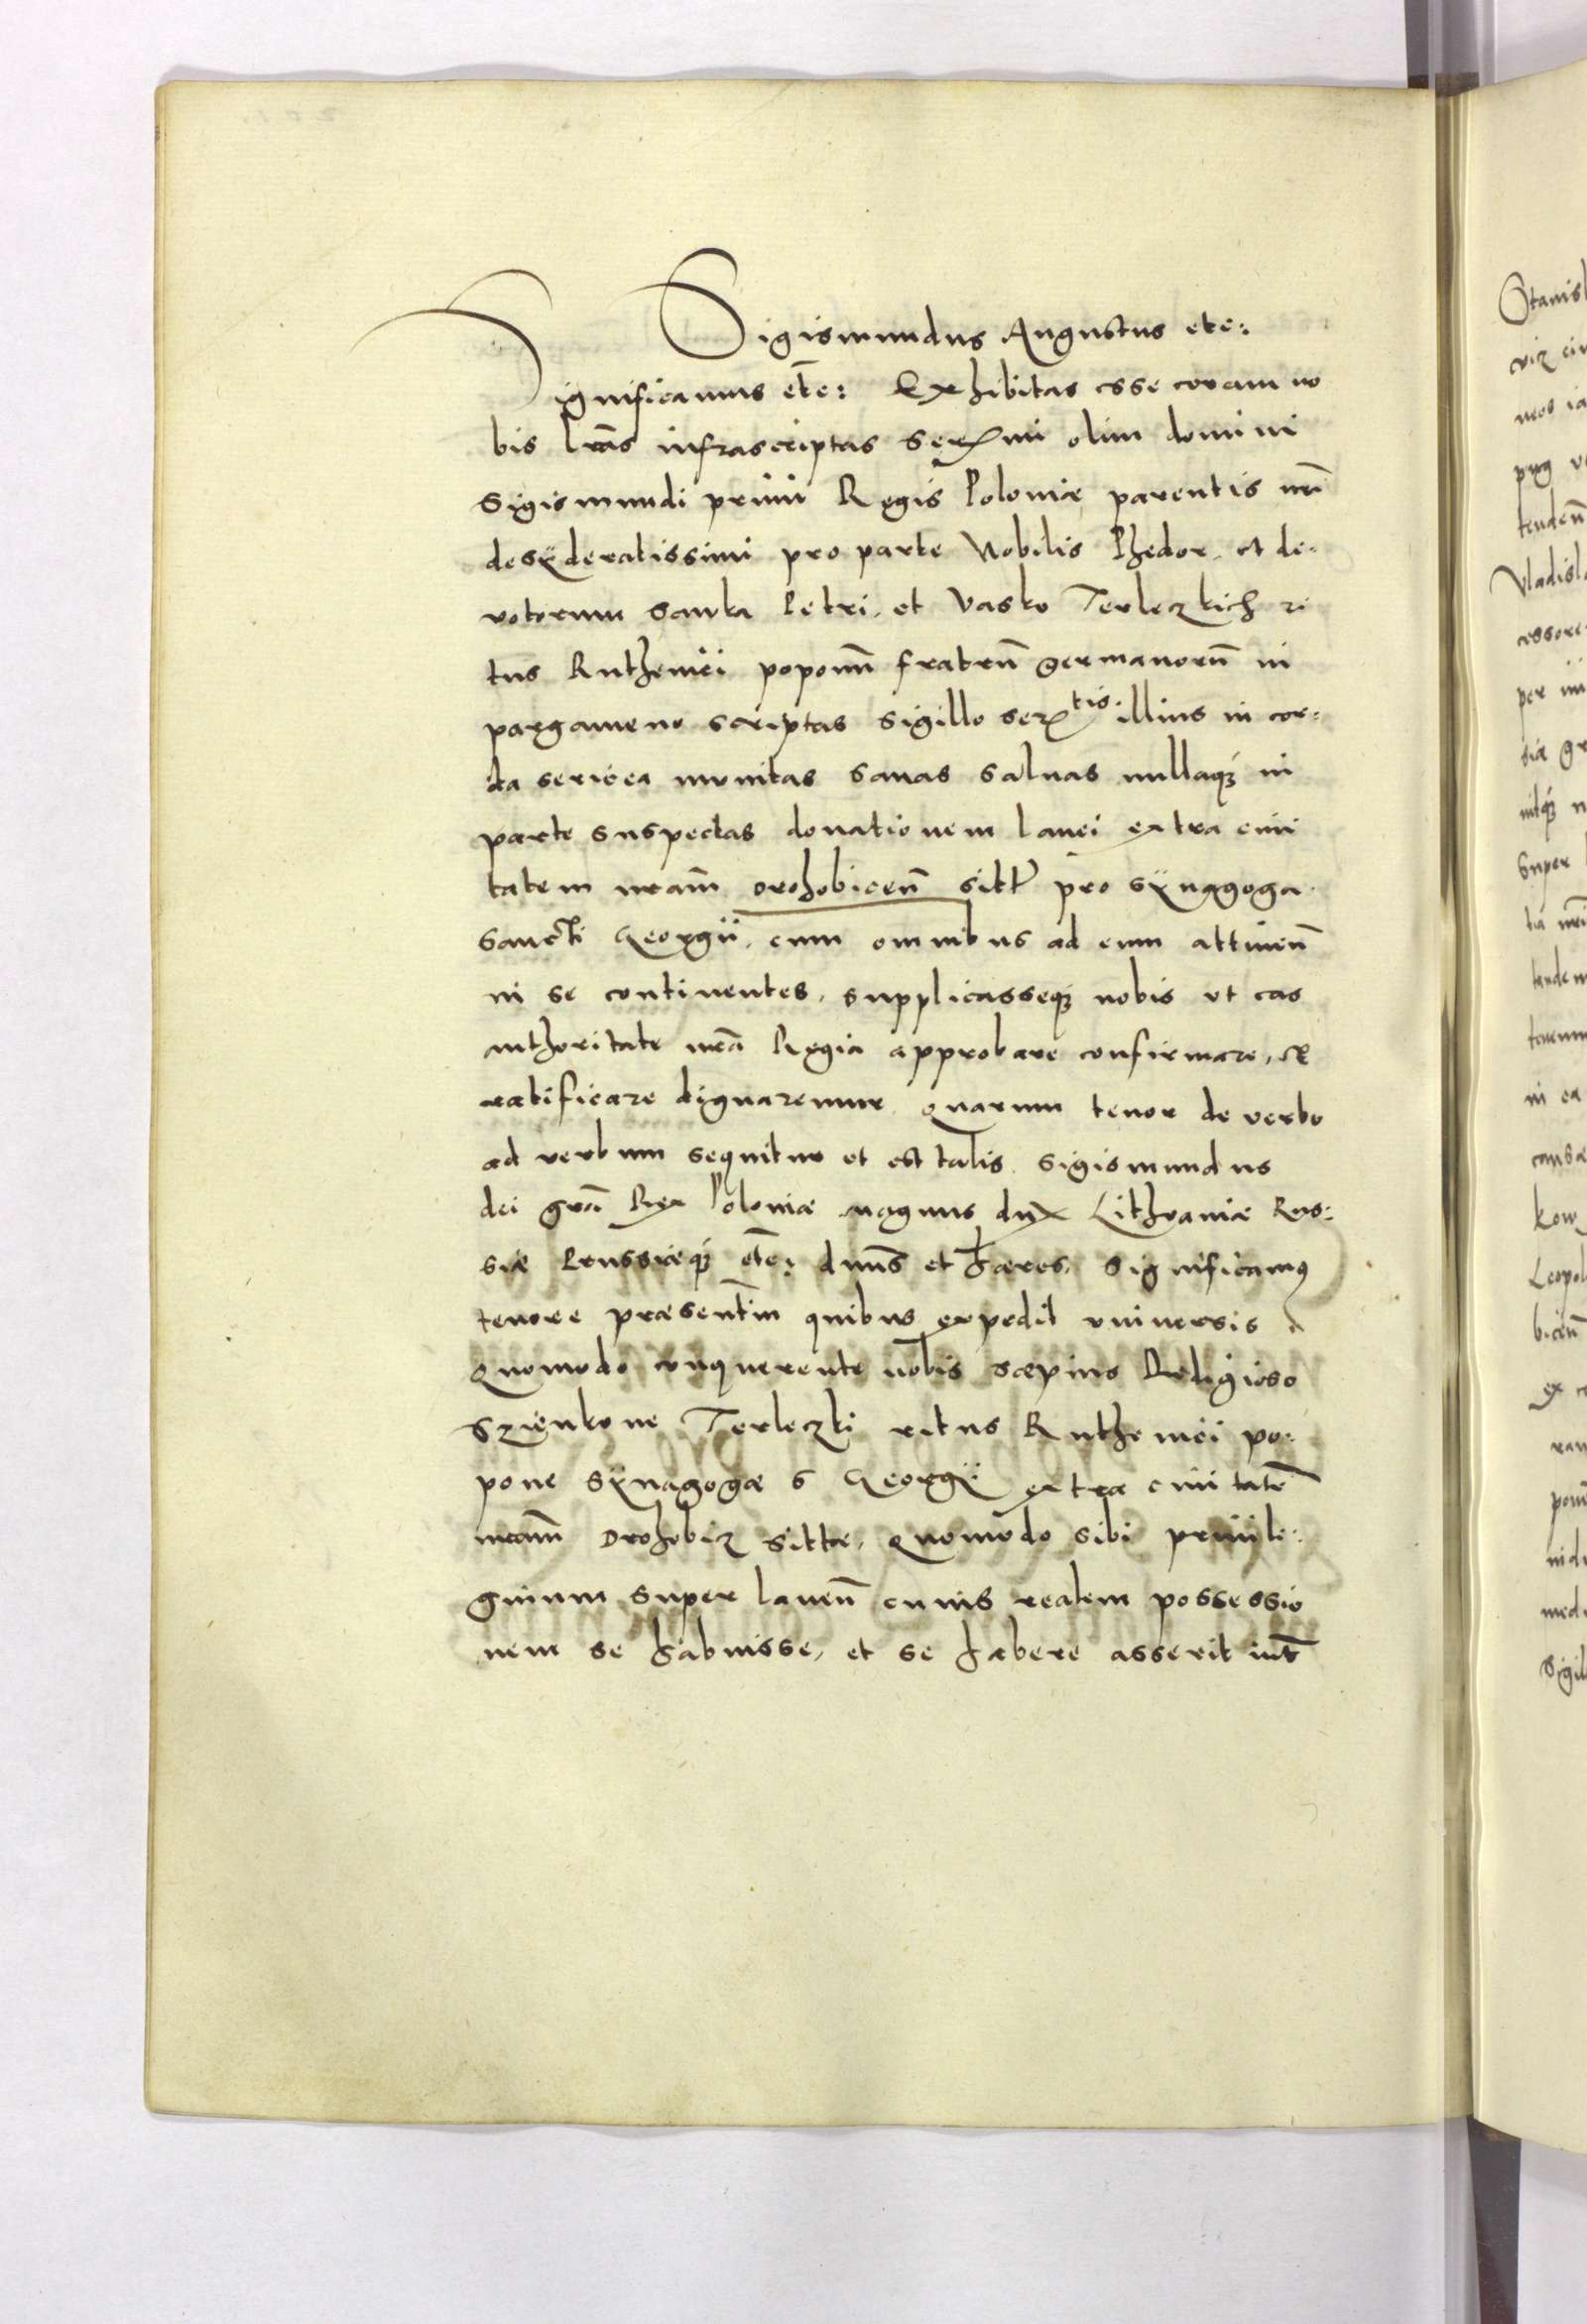 Sigismundus Augustus etc:
Significamus etc: Exhibitas esse coram no
bis lr̃as infrascriptas Serᵐⁱ olim domini
Sigismundi primi Regis Poloniæ parentis nr̃i
desÿderatissimi pro parte Nobilis Phedor, et de:
votorum Sawka Petri, et Vasko Terleczkich ri
tus Ruthenici poponũ fratrũ germanorũ in
pargameno scriptas sigillo serᵗⁱˢ illius in cor:
da sericea munitas sanas saluas nullaq₃ in
parte suspectas donationem lanei extra ciui
tatem nr̃am Drohobiceñ sitt̃ pro sÿnagoga
Sancti Georgii, cum omnibus ad eum attineñ
in se continentes, supplicasseq₃ nobis vt eas
authoritate nr̃a Regia approbare confirmare, et
ratificare dignaremur quarum tenor de verbo
ad verbum sequitur et est talis. Sigismundus
dei gr̃a Rex Poloniæ magnus dux Lithvaniæ Rus:
siæ Prussiæq₃ etc: dnũs et hæres. Significamus
tenore præsentĩm quibus expedit vniversis
Quomodo conquerente nobis sæpius Religioso
Szienkone Terleczki ritus Ruthenici po:
pone Sÿnagogæ S Georgÿ extra ciuitatẽ
nr̃am Drohobicz sittæ, quomodo sibi priuile:
gium super laneũ cuius realem possessio
nem se habuisse, et se habere asserit int̃
Stanisl
neos ia
tendeñ
Vladisl
cessore
per
siæ gr
nitq₃ n
super
tandem
tenem
in ea
causæ
kow
Leopol
biceñ
ex
Sigil